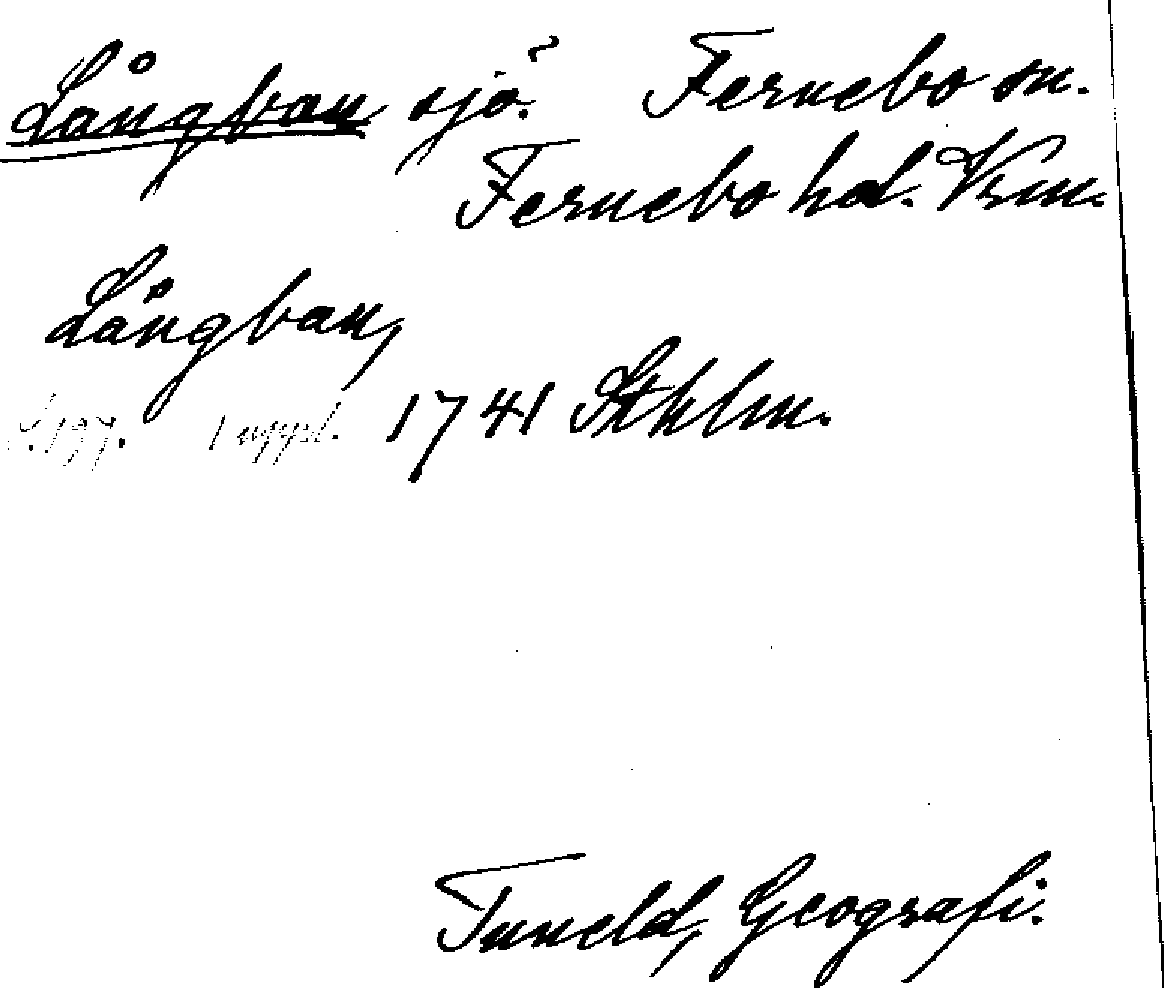 Långban sjö? Fernebo sn.
Fernebo hd. Vrm.
Långban,
S. 197. 1 uppl. 1741 Sthlm.
Tuneld, Geografi.